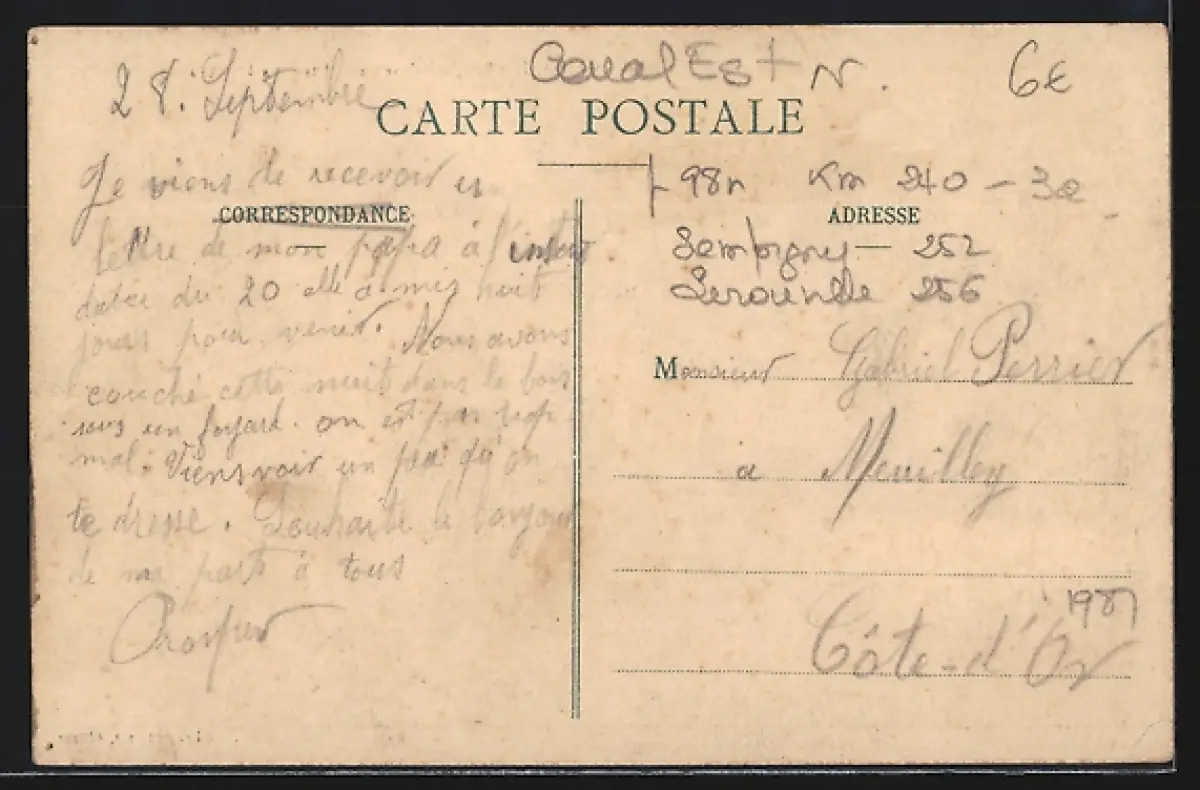 28. Septembre
Canal Est N.
6€
CARTE POSTALE
Je viens de recevoir
CORRESPONDANCE
lettre de mon papa à
datée du 20 elle a mis huit
jours pour venir. Nous avons
couché cette nuit dans le bois
sous un foyard. on est pas trop
mal. Viens voir un peu qu'on
te dresse. Souhaite le bonjour
de ma part à tous
Prosper
98n Km 240 - 3e
ADRESSE
Sampigny 252
Lerouville 256
Monsieur Gabriel Perrier
à Meuilley
1987
Côte-d'Or